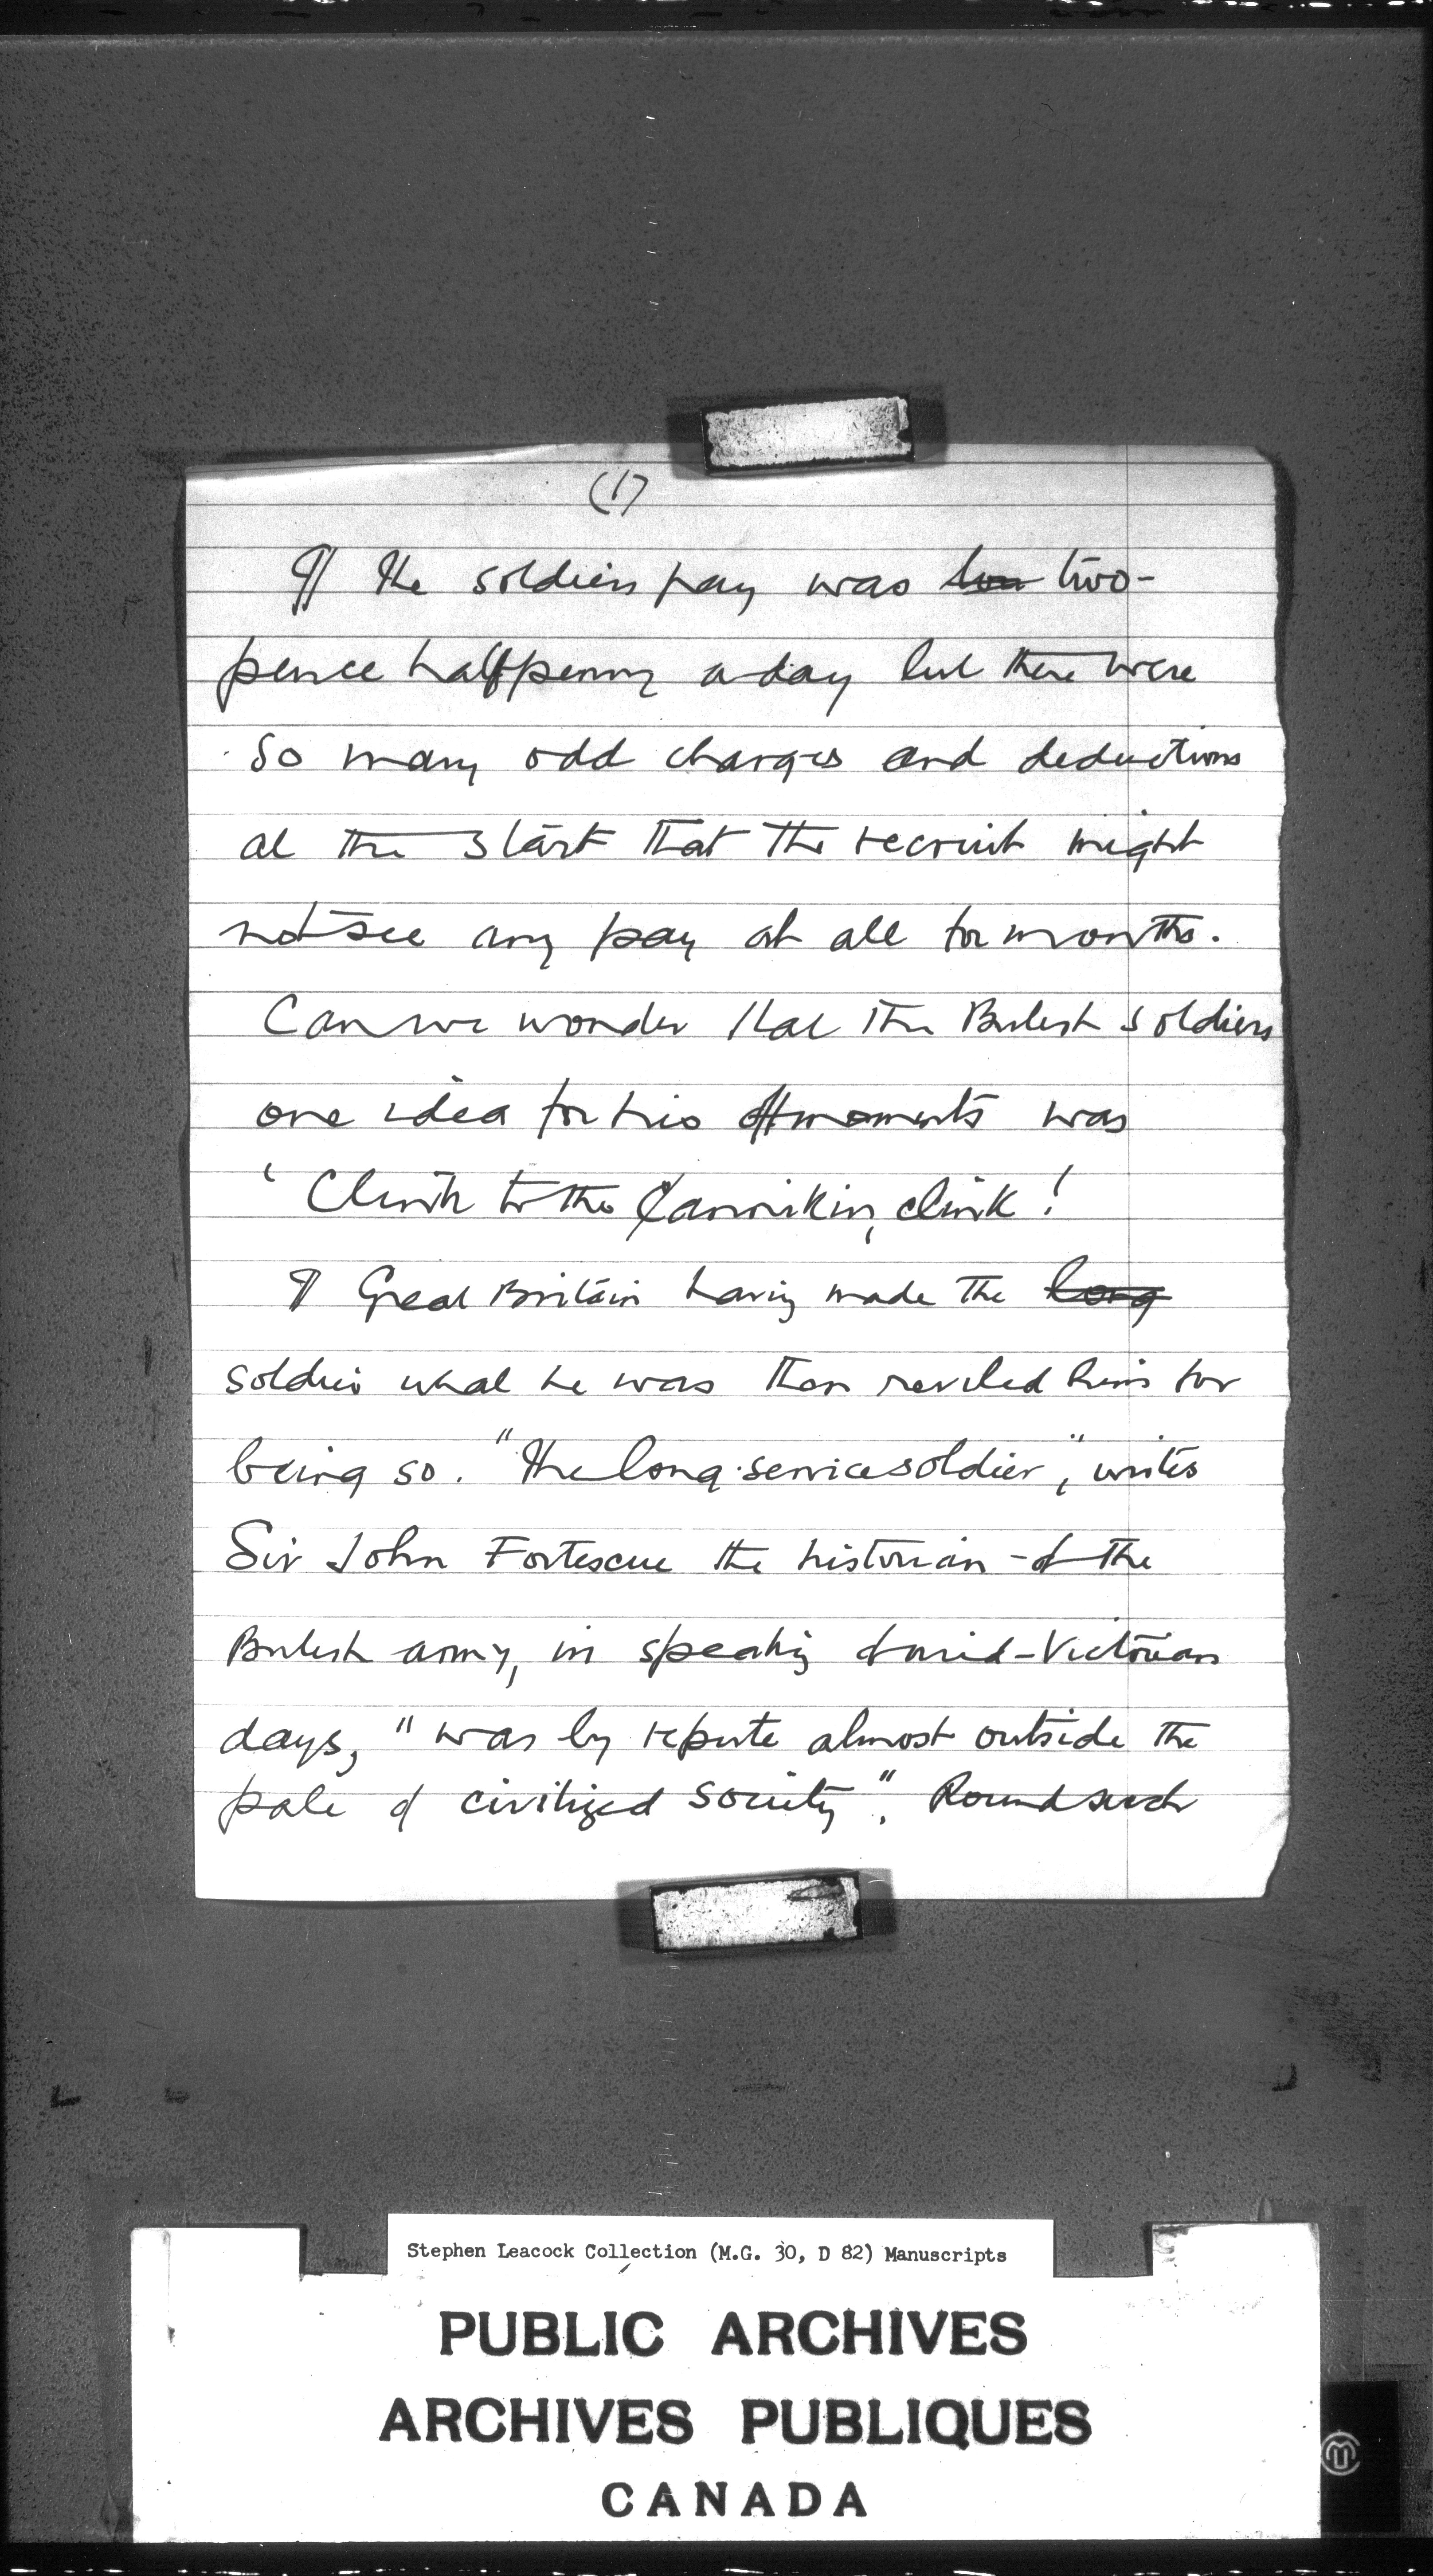 (1)
¶ The soldiers pay was two-
pence halfpenny a day but there were
so many odd charges and deductions
at the start that the recruit might
not see any pay at all for months.
Can we wonder that the British soldiers
one idea for his off moments was
‘Clink to the Cannikin, clink!
¶ Great Britain having made the long
soldier what he was then reviled him for
being so. "The long-service soldier", writes
Sir John Fortescue the historian of the
British army, in speaking of mid-Victorian
days, "was by repute almost outside the
pale of civilized society". Round such
Stephen Leacock Collection (M.G. 30, D 82) Manuscripts
PUBLIC ARCHIVES
ARCHIVES PUBLIQUES
CANADA